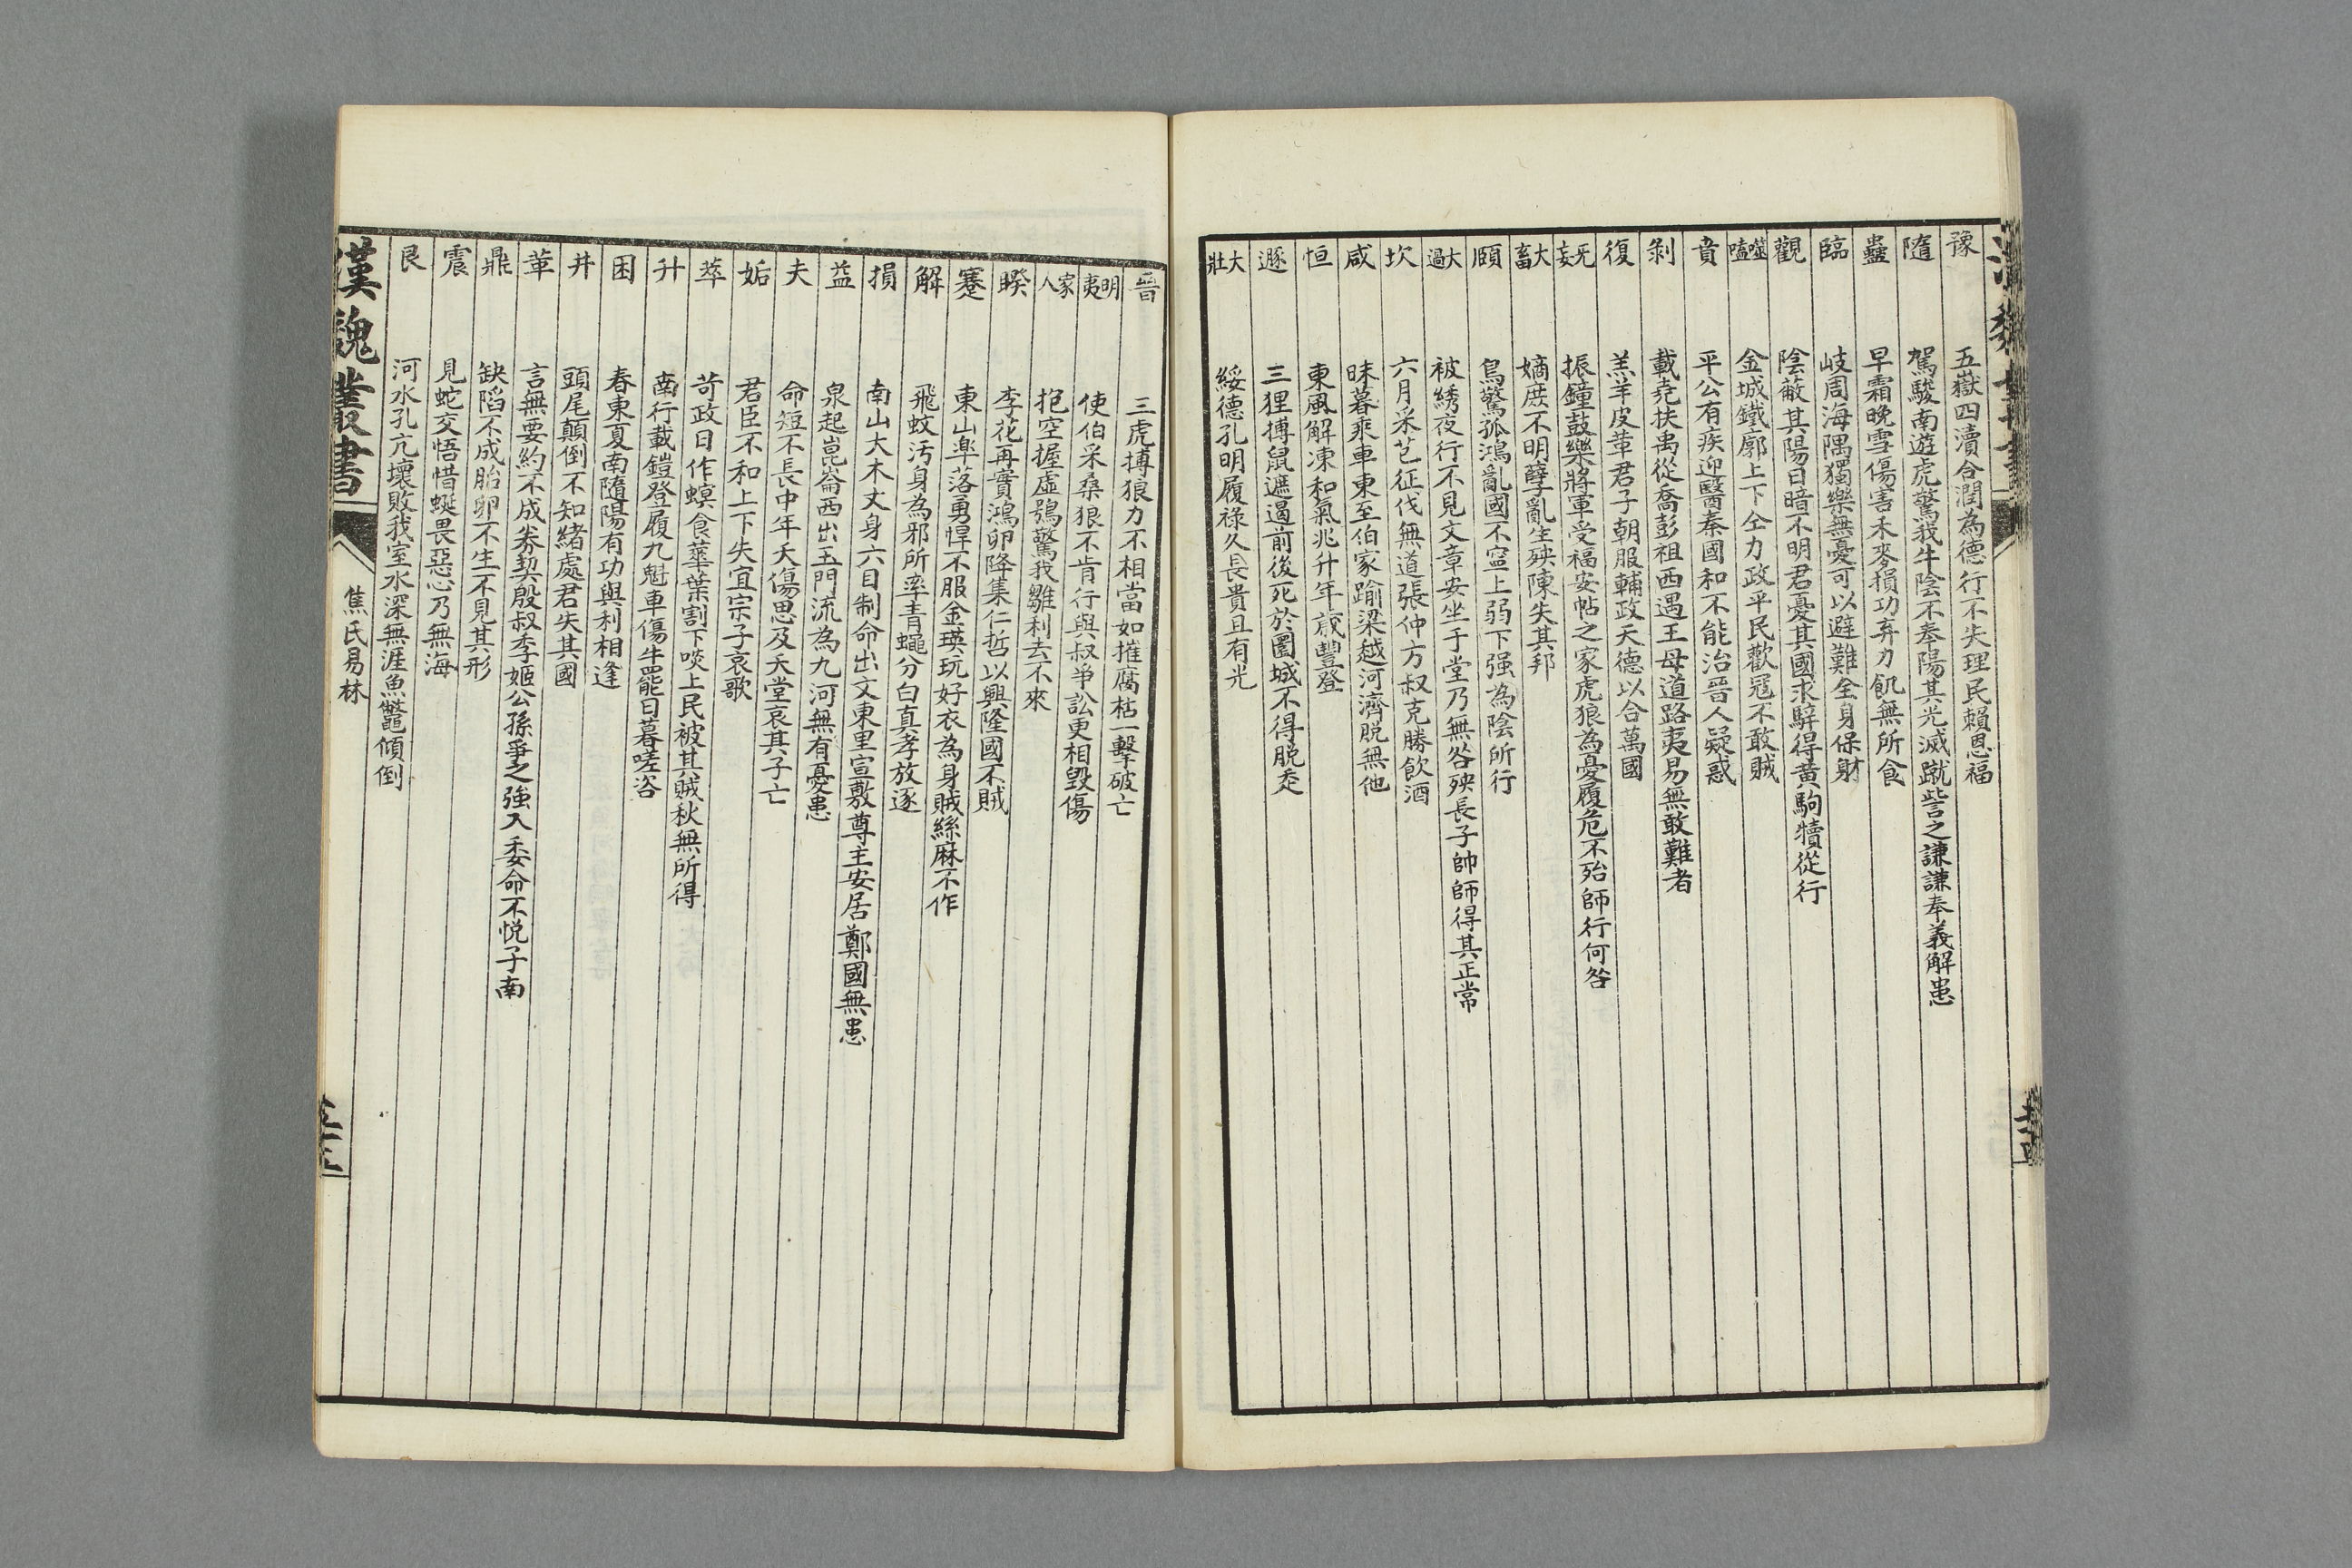 豫 五嶽四瀆合潤為德行不失理民賴恩福
隨 駕駿南遊虎驚我牛陰不奉陽其光滅蹴訾之謙謙奉義解患
蠱 早霜晚雪傷害禾麥損功弃力飢無所食
臨 岐周海隅獨樂無憂可以避難全身保財
觀 陰蔽其陽日暗不明君憂其國求騂得黃駒犢從行
噬嗑 金城鐵廓上下仝力政平民歡寇不敢賊
賁 平公有疾迎醫秦國和不能治晉人疑惑
剝 載堯扶禹從喬彭祖西遇王母道路夷易無敢難者
復 羔羊皮革君子朝服輔政天德以合萬國
无妄 振鐘鼓樂將軍受福安帖之家虎狼為憂履危不殆師行何咎
大畜 嫡庶不明孽亂生殃陳失其邦
頤 鳥驚孤鴻亂國不寧上弱下强為陰所行
大過 被綉夜行不見文章安坐于堂乃無咎殃長子帥師得其正常
坎 六月采芑征伐無道張仲方叔克勝飲酒
咸 昧暮乘車東至伯家踰梁越河濟脫無他
恒 東風解凍和氣兆升年歲豐登
遯 三狸搏鼠遮遏前後死於圜城不得脫走
大壯 綏德孔明履祿久長貴且有光
晉 三虎搏狼力不相當如摧腐枯一擊破亡
明夷 使伯采桑狠不肯行與叔爭訟更相毀傷
家人 抱空握虛鴞驚我雛利去不來
睽 李花再實鴻卵降集仁哲以興隆國不賊
蹇 東山辠落勇悍不服金瑛玩好衣為身賊絲麻不作
解 飛蚊汚身為邪所率青蠅分白真孝放逐
損 南山大木文身六目制命出文東里宣敷尊主安居鄭國無患
益 泉起崑崙西出玉門流為九河無有憂患
夬 命短不長中年夭傷思及夭堂哀其子亡
姤 君臣不和上下失宜宗子哀歌
萃 苛政日作螟食華葉割下啖上民被其賊秋無所得
升 南行載鎧登履九魁車傷牛罷日暮嗟咨
困 春東夏南隨陽有功與利相逢
井 頭尾顛倒不知緒處君失其國
革 言無要約不成券契殷叔季姬公孫爭之強入委命不悅子南
鼎 缺䧟不成胎卵不生不見其形
震 見蛇交悟惜蜒畏惡心乃無海
艮 河水孔亢壞敗我室水深無涯魚鱉傾倒
漢魏叢書 焦氏易林